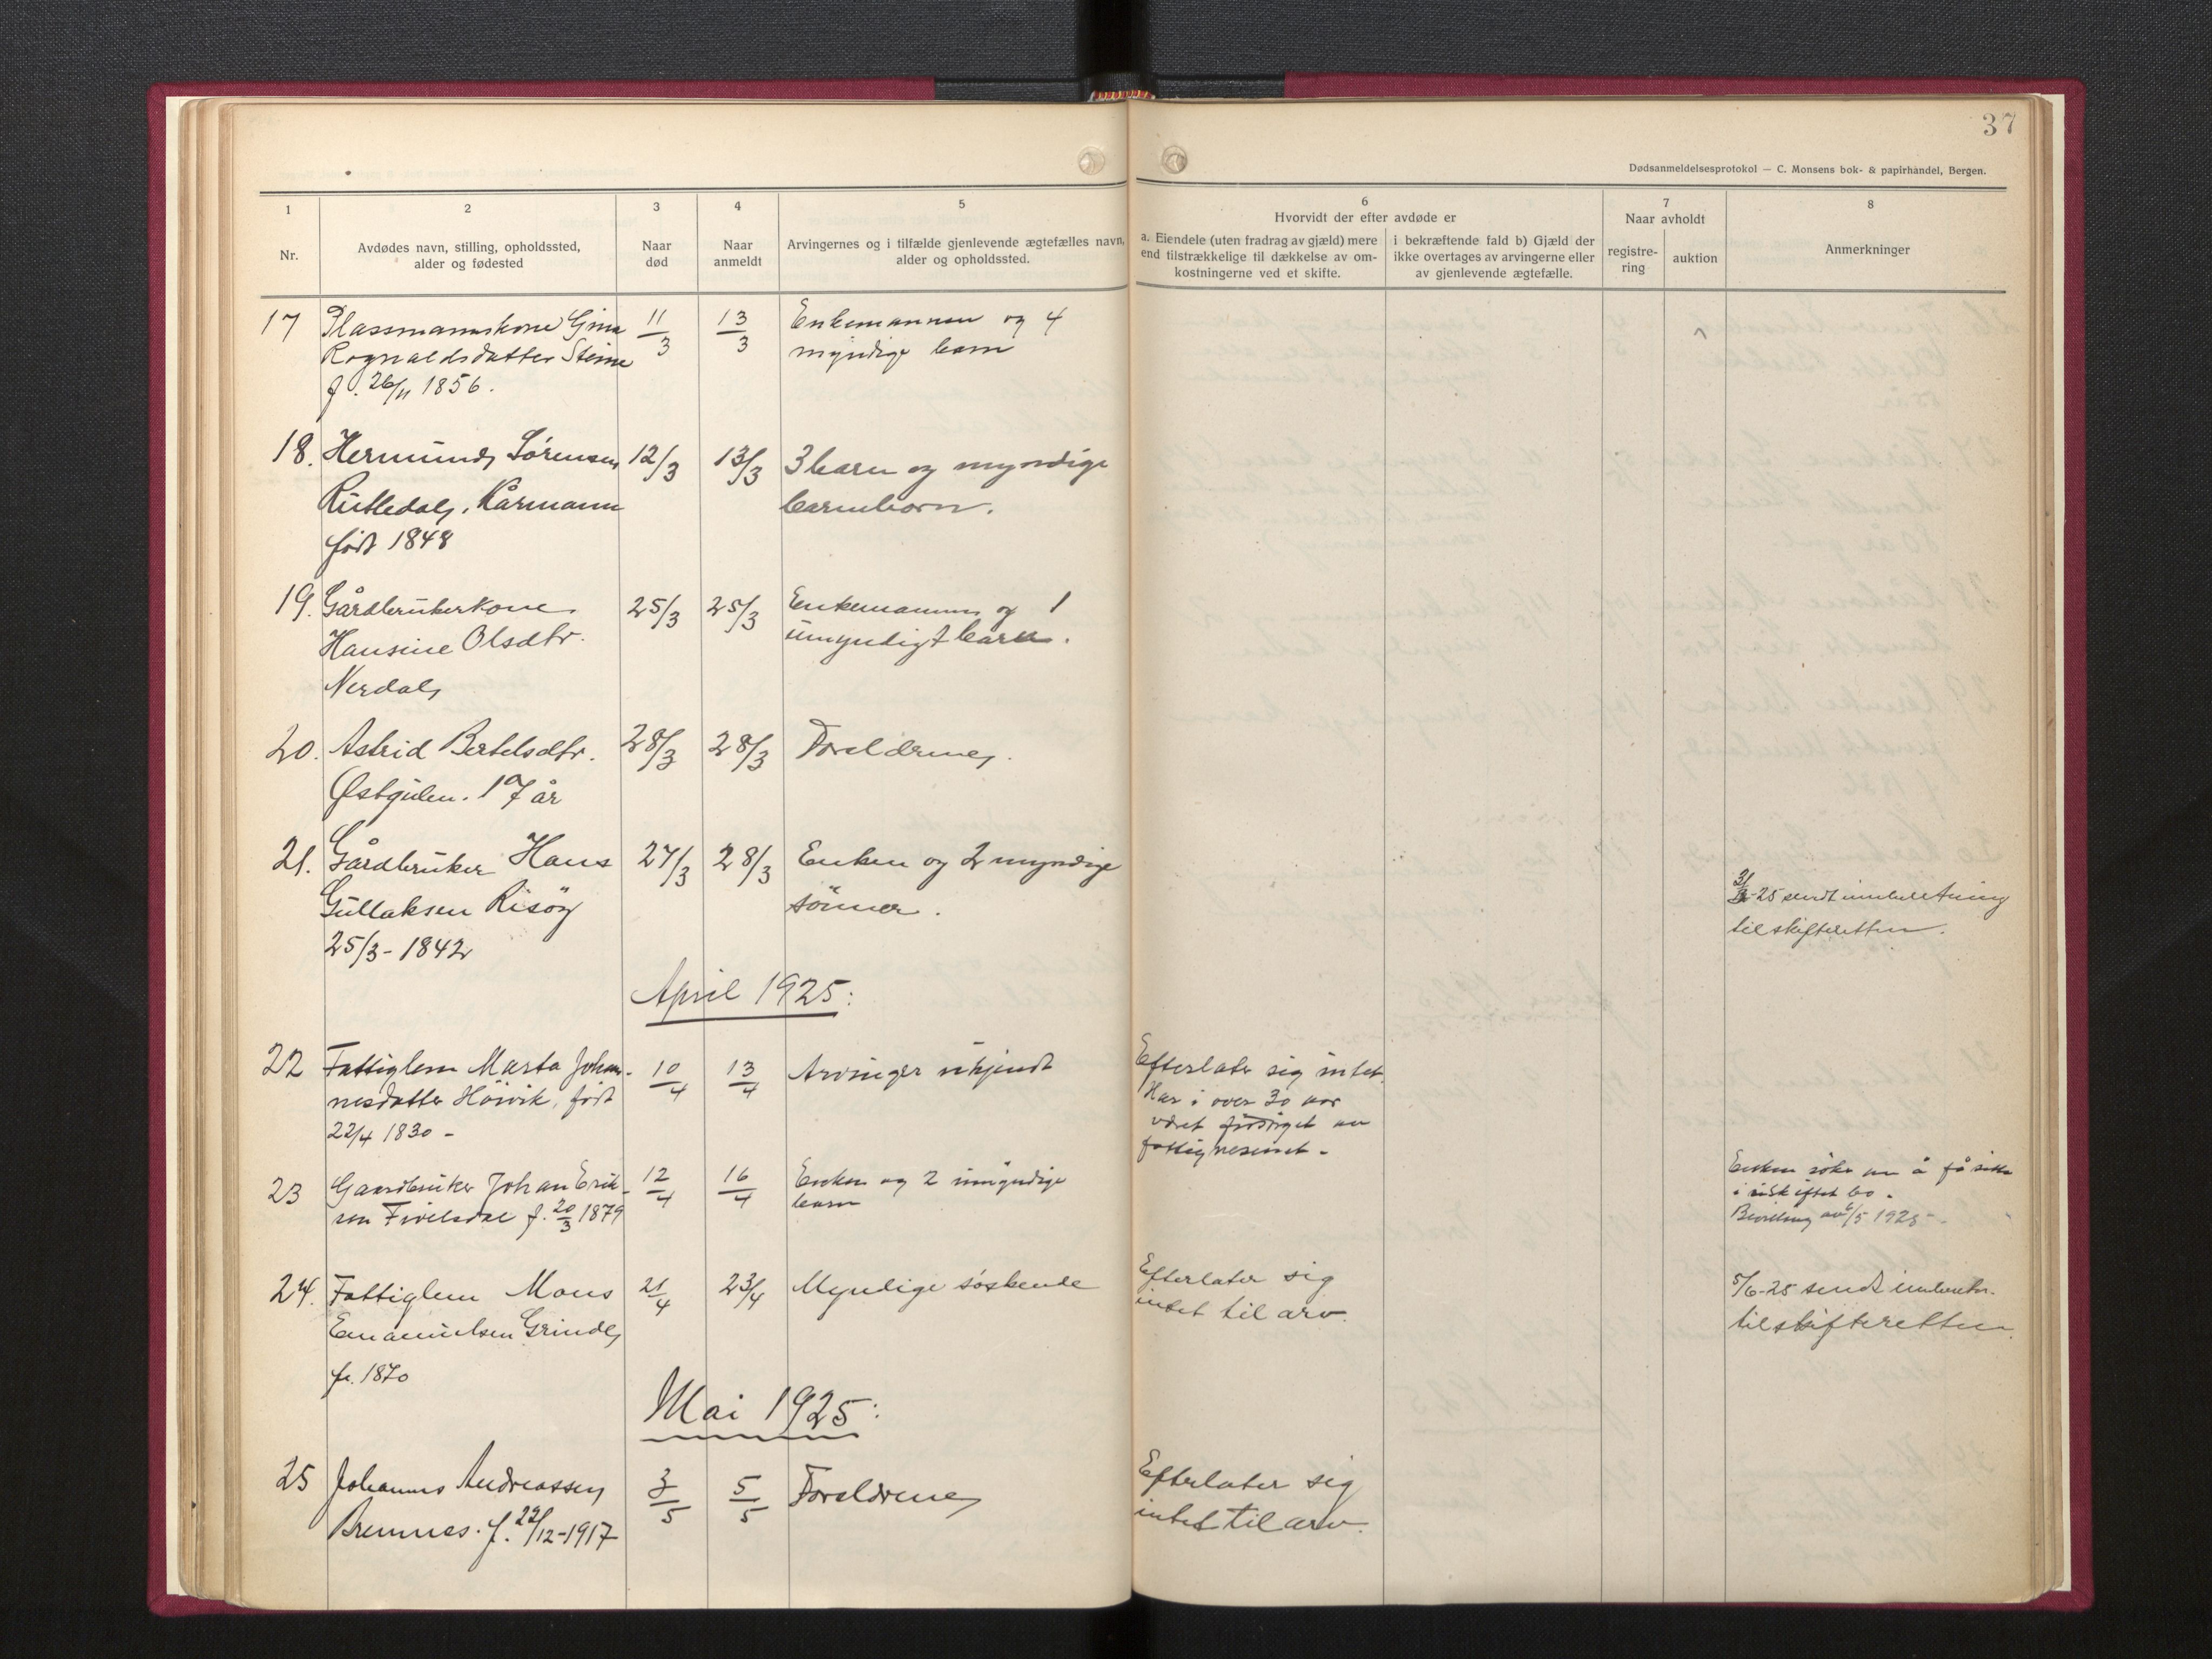 37
Dødsanmeldelsesprotokol — C. Monsens bok- & papirhandel, Bergen.
1 2 3 4 5 6 7 8
Nr.
Avdødes navn, stilling, opholdssted,
alder og fødested
Naar
død
Naar
anmeldt
Arvingernes og i tilfælde gjenlevende ægtefælles navn,
alder og opholdssted.
Hvorvidt der efter avdøde er
a. Eiendele (uten fradrag av gjæld) mere
end tilstrækkelige til dækkelse av om-
kostningerne ved et skifte.
i bekræftende fald b) Gjæld der
ikke overtages av arvingerne eller
av gjenlevende ægtefælle.
Naar avholdt
registre-
ring
auktion
Anmerkninger
17 Plassmannskone Gina 11/3 13/3 Enkemannen og 4
Rognaldsdatter Steine myndige barn
f. 26/11 1856.
18. Hermund Sørensen 12/3 13/3 3 barn og myndige
Rutledal, Kårmann barnborn.
født 1848
19. Gårdbrukerkone 25/3 25/3 Enkemannen og 1
Hansine Olsdtr. umyndigt barn.
Nerdal
20. Astrid Bertelsdtr. 28/3 28/3 Foreldrene.
Østgulen. 17 år
21. Gårdbruker Hans 27/3 28/3 Enken og 2 myndige
Gullaksen Risöy sönner.
25/3-1842
31/3-25 sendt innberetning
til skifteretten.
April 1925:
22 Fattiglem Marta Johan- 10/4 13/4 Arvinger ukjendt Efterlater sig intet.
nesdatter Höivik, født Har i over 30 aar
22/4 1830 - været forsörget av
fattigvesenet.-
23 Gaardbruker Johan Erik- 12/4 16/4 Enken og 2 umyndige
sen Fivelsdal f. 20/3 1879 barn
Enken söker om å få sitte
i uskiftet bo.
Bevilling av 6/5 1925-
24. Fattiglem Mons 21/4 23/4 Myndige søskende Efterlater sig 5/6-25 sendt innberetn.
Emanuelsen Grinde intet til arv. til skifteretten.
f. 1870
Mai 1925:
25 Johannes Andreassen 3/5 5/5 Foreldrene Efterlater sig
Bremnes. f. 22/12-1917 intet til arv.